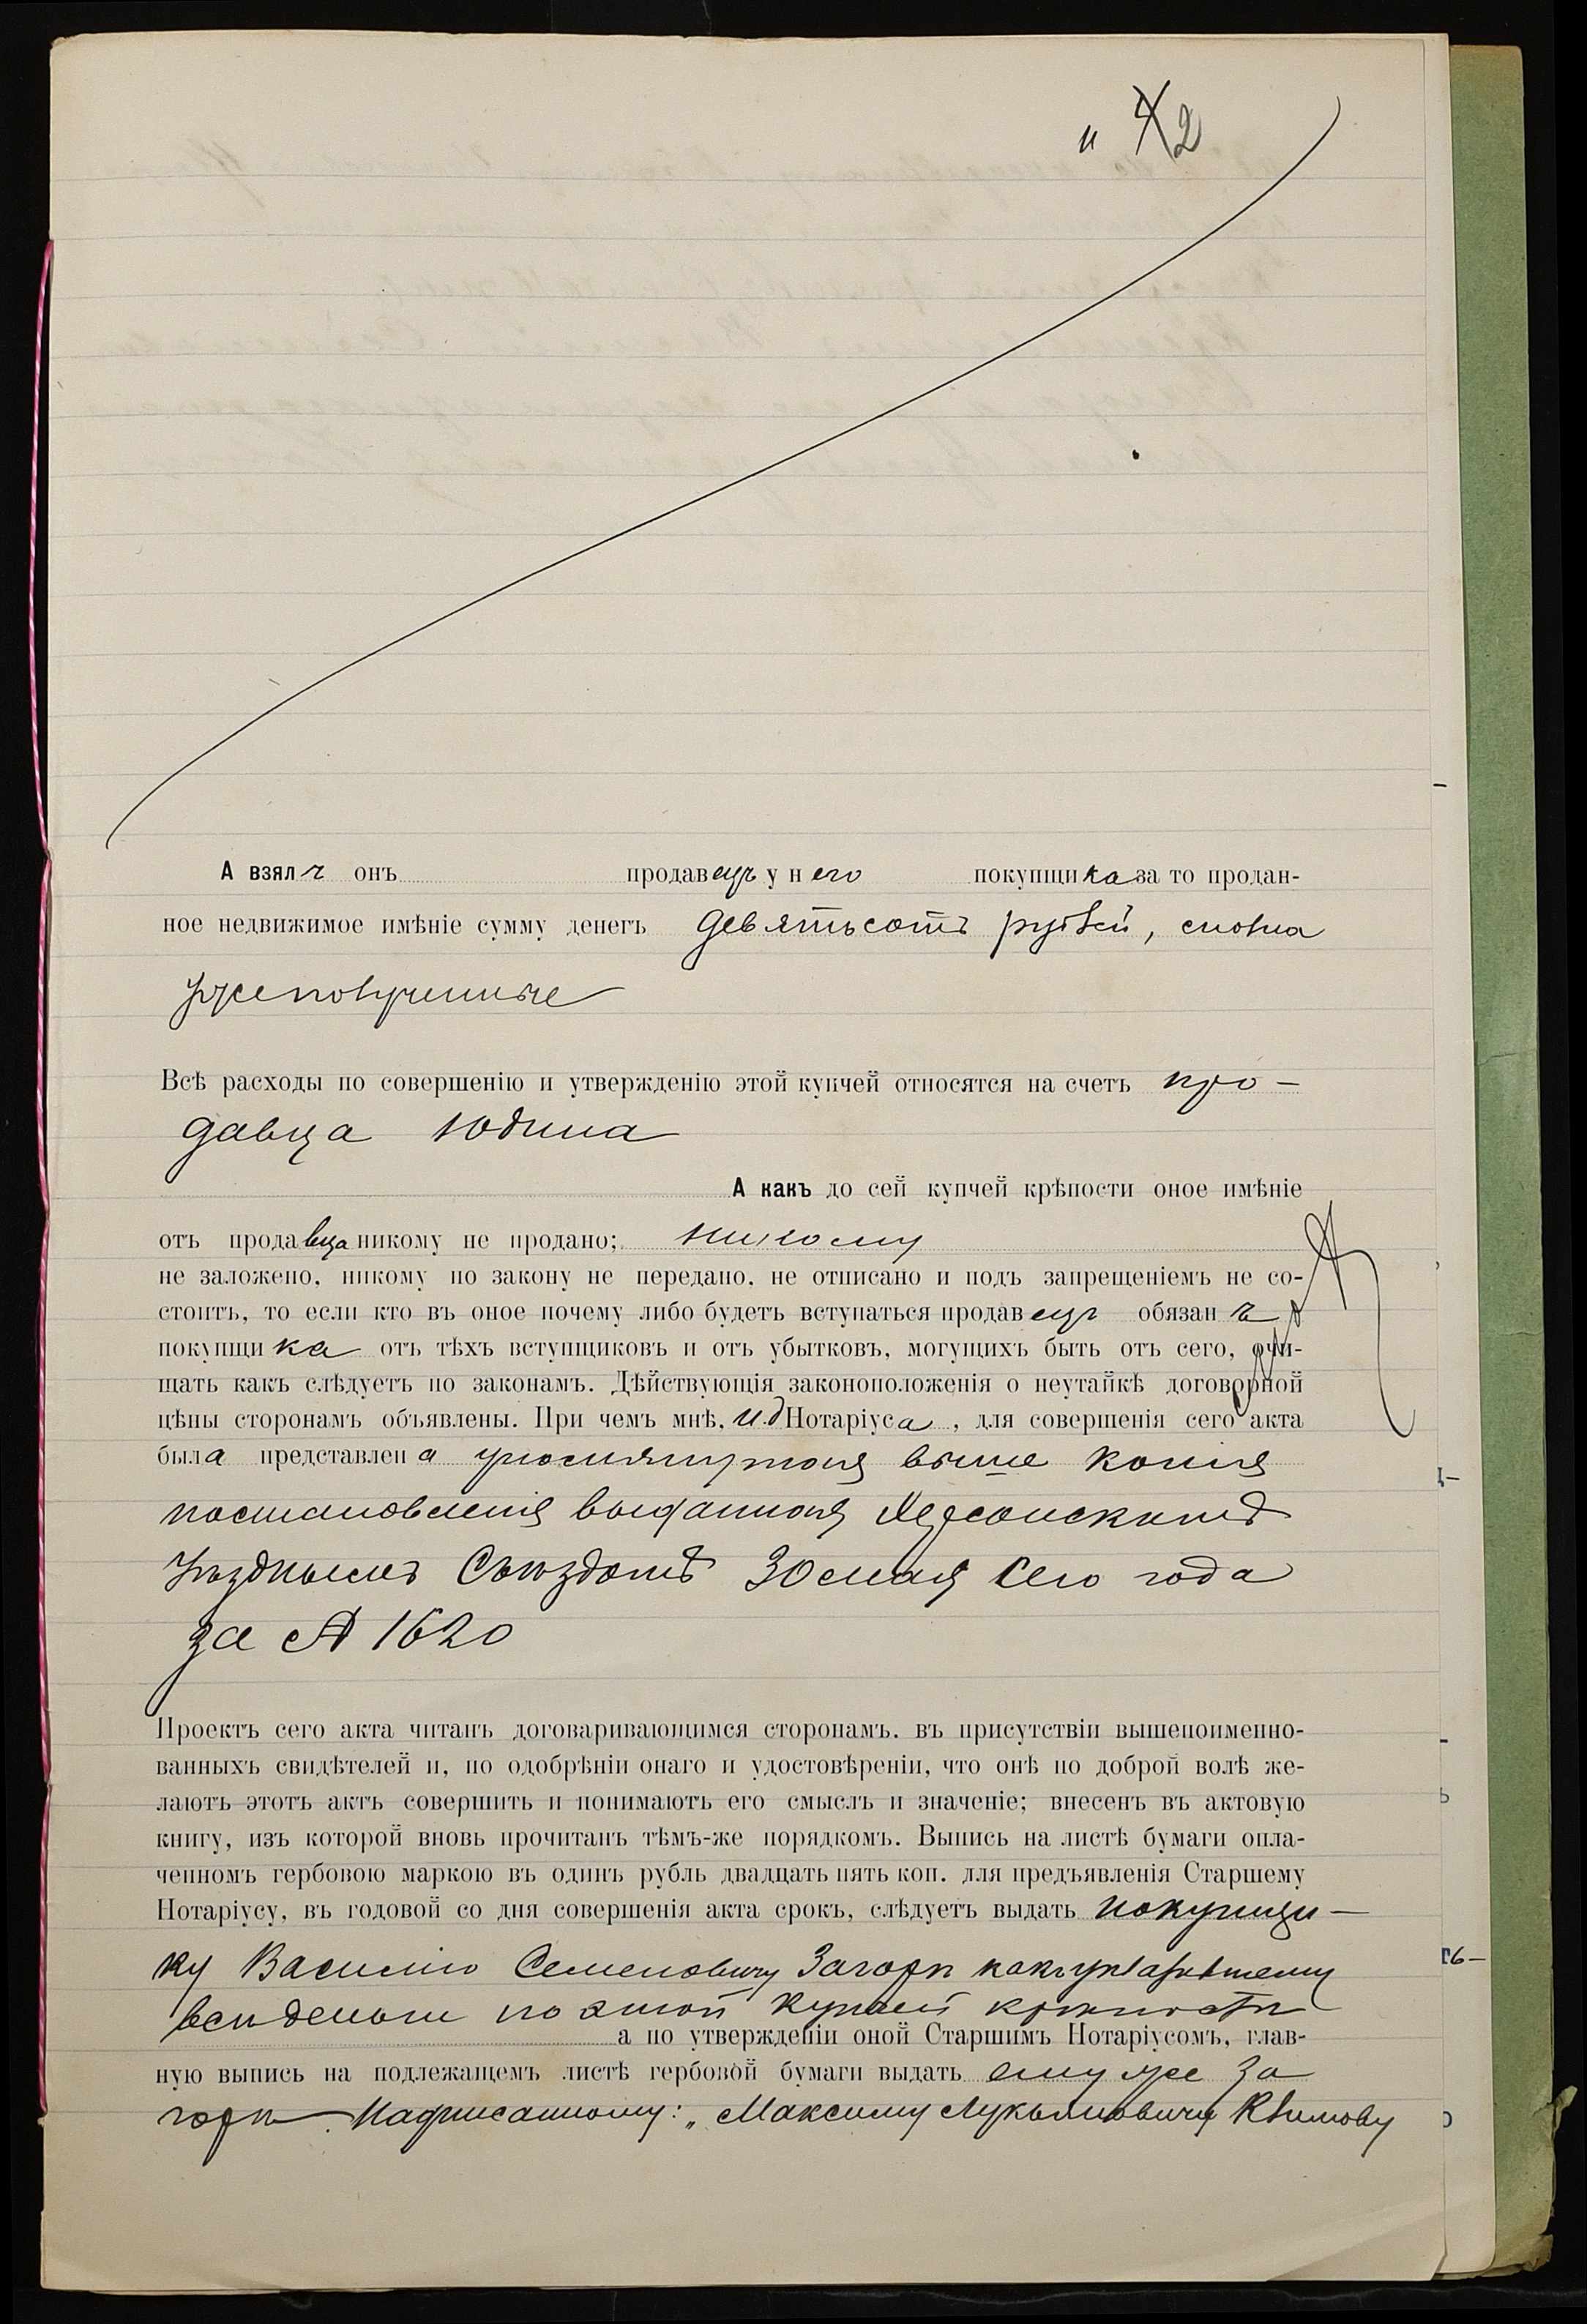 и 42
А взялъ онъ продавецъ у него покупщика за то продан-
ное недвижимое имѣніе сумму денегъ девятьсотъ рублей, сполна
уже полученные
Всѣ расходы по совершенію и утвержденію этой купчей относятся на счетъ про-
давца Юдина
А какъ до сей купчей крѣпости оное имѣніе
отъ продавца никому не продано; никому
не заложено, никому по закону не передано, не отписано и подъ запрещеніемъ не со-
стоитъ, то если кто въ оное почему либо будетъ вступаться продавецъ обязанъ
покупщика отъ тѣхъ вступщиковъ и отъ убытковъ, могущихъ быть отъ сего, очи-
щать какъ слѣдуетъ по законамъ. Дѣйствующія законоположенія о неутайкѣ договорной
цѣны сторонамъ объявлены. При чемъ мнѣ, И.д Нотаріуса, для совершенія сего акта
была представлена упомянутая выше копія
постановленія выданная Херсонскимъ
Уѣзднымъ Съѣздомъ 30 мая сего года
за № 1620
Проектъ сего акта читанъ договаривающимся сторонамъ, въ присутствіи вышепоименно-
ванныхъ свидѣтелей и, по одобрѣніи онаго и удостовѣреніи, что онѣ по доброй волѣ же-
лаютъ этотъ актъ совершить и понимаютъ его смыслъ и значеніе; внесенъ въ актовую
книгу, изъ которой вновь прочитанъ тѣмъ-же порядкомъ. Выпись на листѣ бумаги опла-
ченномъ гербовою маркою въ одинъ рубль двадцать пять коп. для предъявленія Старшему
Нотаріусу, въ годовой со дня совершенія акта срокъ, слѣдуетъ выдать покупщи-
ку Василію Семеновичу Загорѣ какъ
всѣ деньги по этой купчей крѣпости
а по утвержденіи оной Старшимъ Нотаріусомъ, глав-
ную выпись на подлежащемъ листѣ гербовой бумаги выдать ему же За
горѣ. Надписанному: „Максиму Лукьяновичу Климову